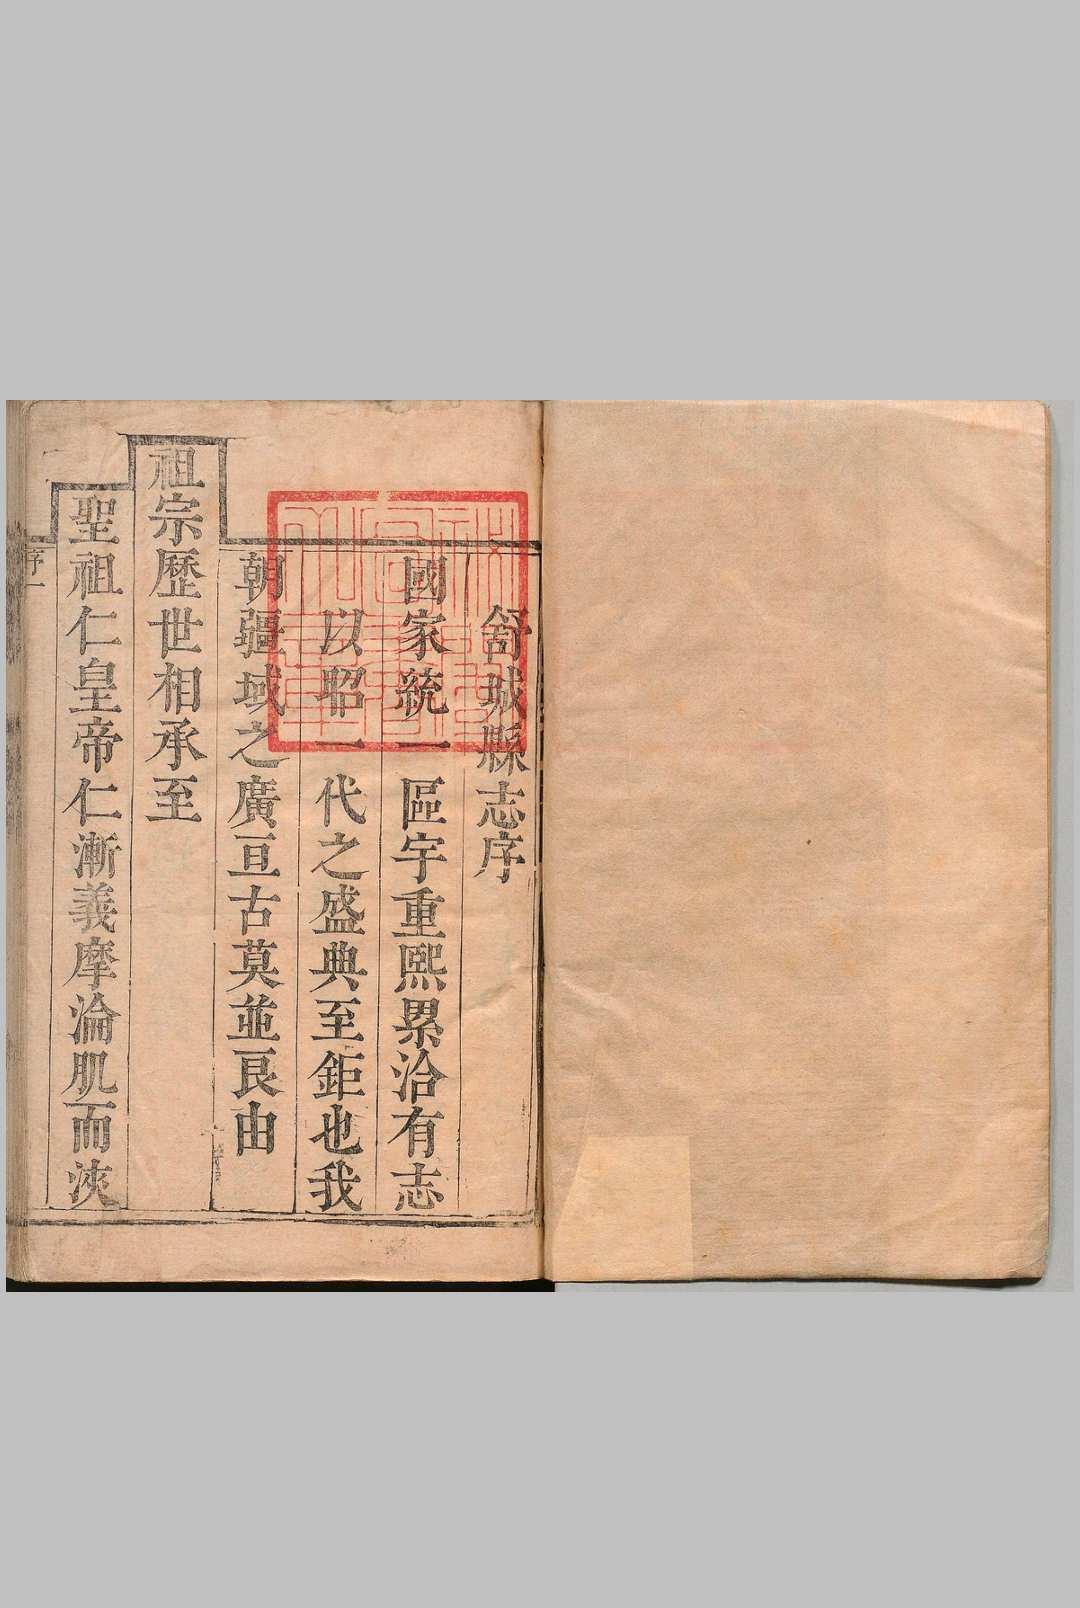 舒城縣志序
國家統一區宇重熙累洽有志
以昭一代之盛典至鉅也我
朝疆域之廣亘古莫並良由
祖宗歷世相承至
聖祖仁皇帝仁漸義摩淪肌而浹
序一